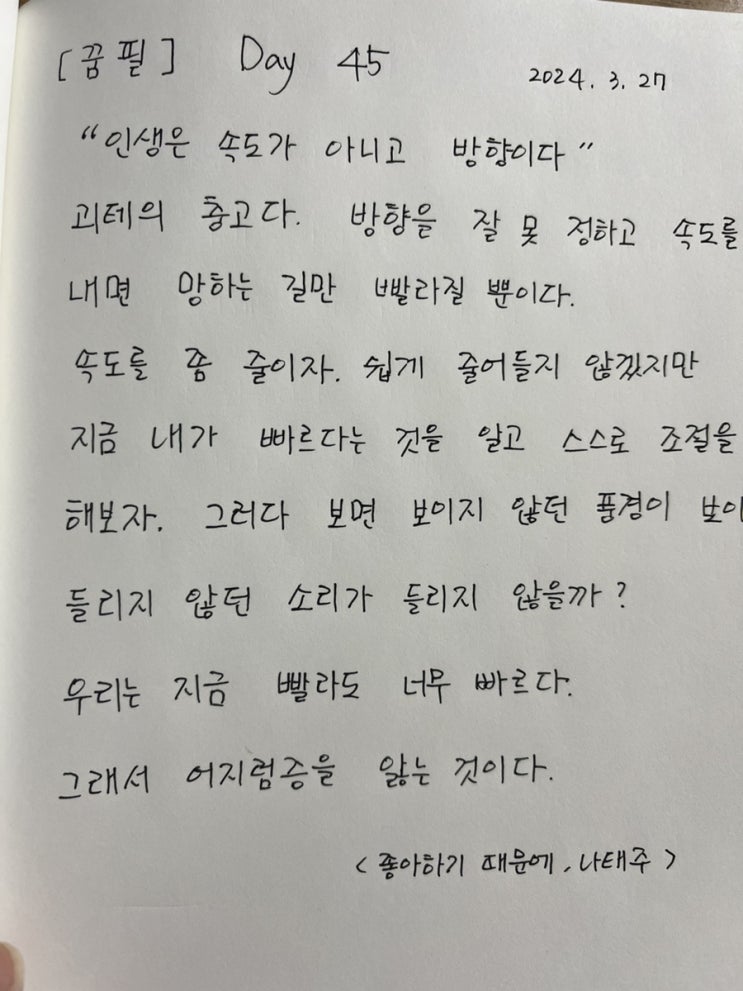 [꿈필] Day 45 2024. 3. 27
"인생은 속도가 아니고 방향이다"
괴테의 충고다. 방향을 잘 못 정하고 속도를
내면 망하는 길만 빨라질 뿐이다.
속도를 좀 줄이자. 쉽게 줄어들지 않겠지만
지금 내가 빠르다는 것을 알고 스스로 조절을
해보자. 그러다 보면 보이지 않던 풍경이 보이
들리지 않던 소리가 들리지 않을까?
우리는 지금 빨라도 너무 빠르다.
그래서 어지럼증을 앓는 것이다.
<좋아하기 때문에, 나태주>